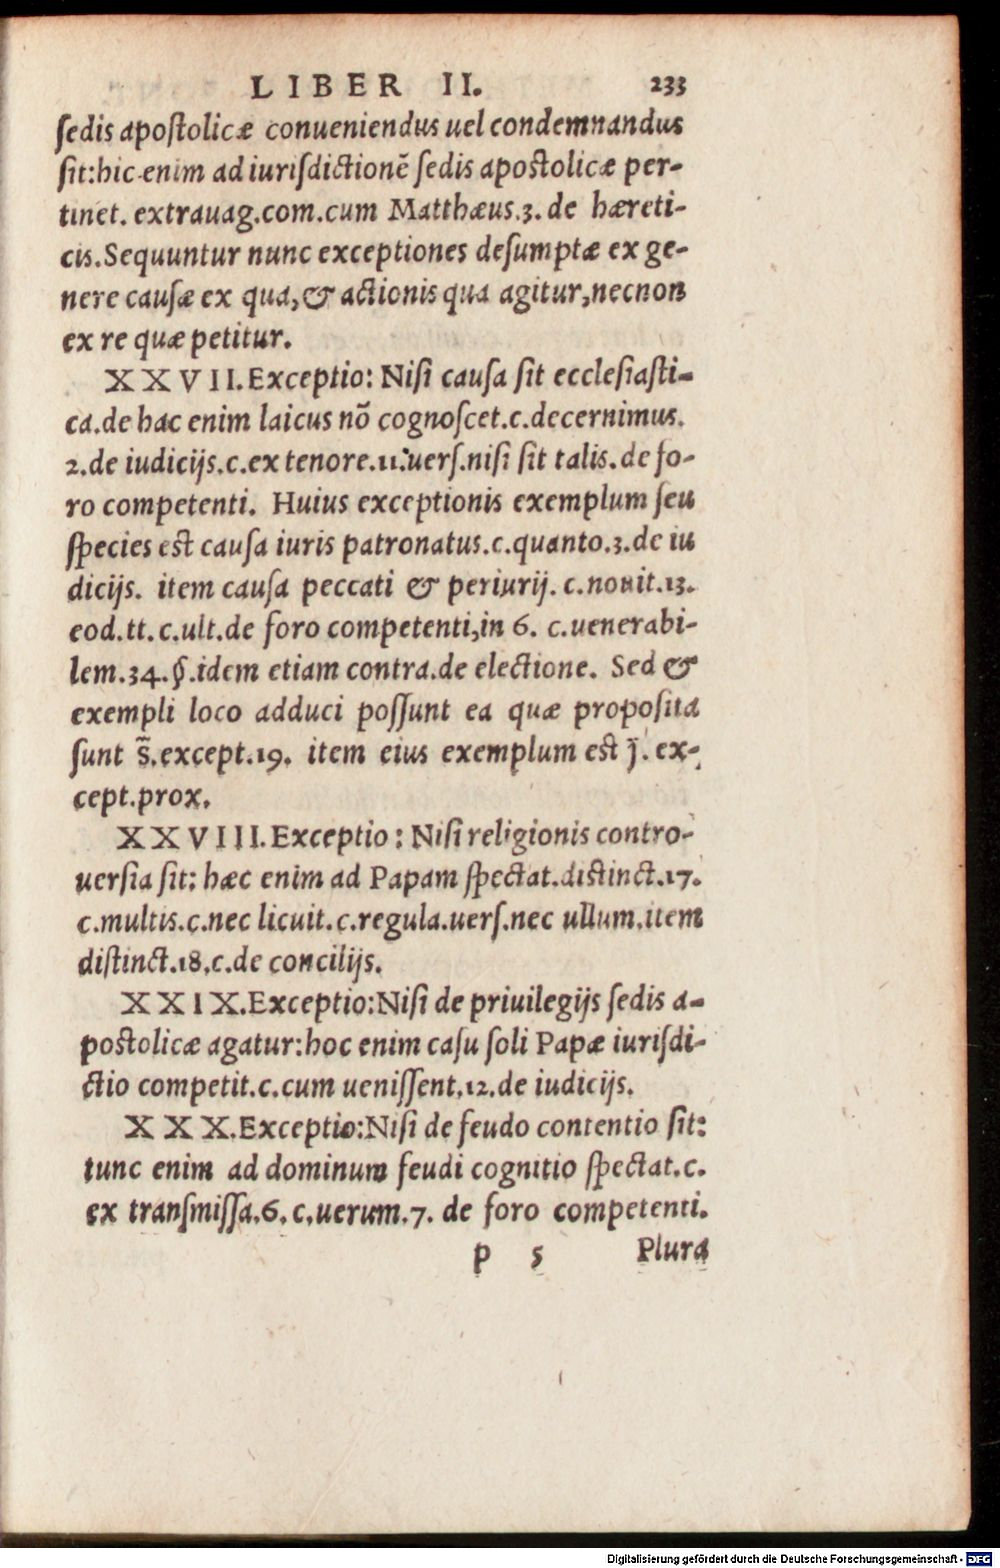 LIBER II. 233
ſedis apoſtolicæ conueniendus uel condemnandus
ſit:hic enim ad iuriſdictionẽ ſedis apoſtolicæ per-
tinet. extrauag.com.cum Matthæus.3. de hæreti-
cis.Sequuntur nunc exceptiones deſumptæ ex ge-
nere cauſæ ex qua,& actionis qua agitur,necnon
ex re quæ petitur.
XXVII.Exceptio: Niſi cauſa ſit eccleſiaſti-
ca.de hac enim laicus nõ cognoſcet.c.decernimus.
2.de iudicijs.c.ex tenore.11.uerſ.niſi ſit talis.de fo-
ro competenti. Huius exceptionis exemplum ſeu
ſpecies est cauſa iuris patronatus.c.quanto.3.de iu
dicijs. item cauſa peccati & periurij. c.nouit.13.
eod.tt.c.ult.de foro competenti,in 6. c.uenerabi-
lem.34.§.idem etiam contra.de electione. Sed &
exempli loco adduci poſſunt ea quæ propoſita
ſunt s̃.except.19. item eius exemplum est j̃. ex-
cept.prox.
XXVIII.Exceptio: Niſi religionis contro-
uerſia ſit: hæc enim ad Papam ſpectat.distinct.17.
c.multis.c.nec licuit.c.regula.uerſ.nec ullum.item
diſtinct.18.c.de concilijs.
XXIX.Exceptio:Niſi de priuilegijs ſedis a-
postolicæ agatur:hoc enim caſu ſoli Papæ iuriſdi-
ctio competit.c.cum ueniſſent.12.de iudicijs.
XXX.Exceptio:Niſi de feudo contentio ſit:
tunc enim ad dominum feudi cognitio ſpectat.c.
ex tranſmiſſa.6.c.uerum.7. de foro competenti.
p 5 Plura
Digitalisierung gefördert durch die Deutsche Forschungsgemeinschaft - DFG